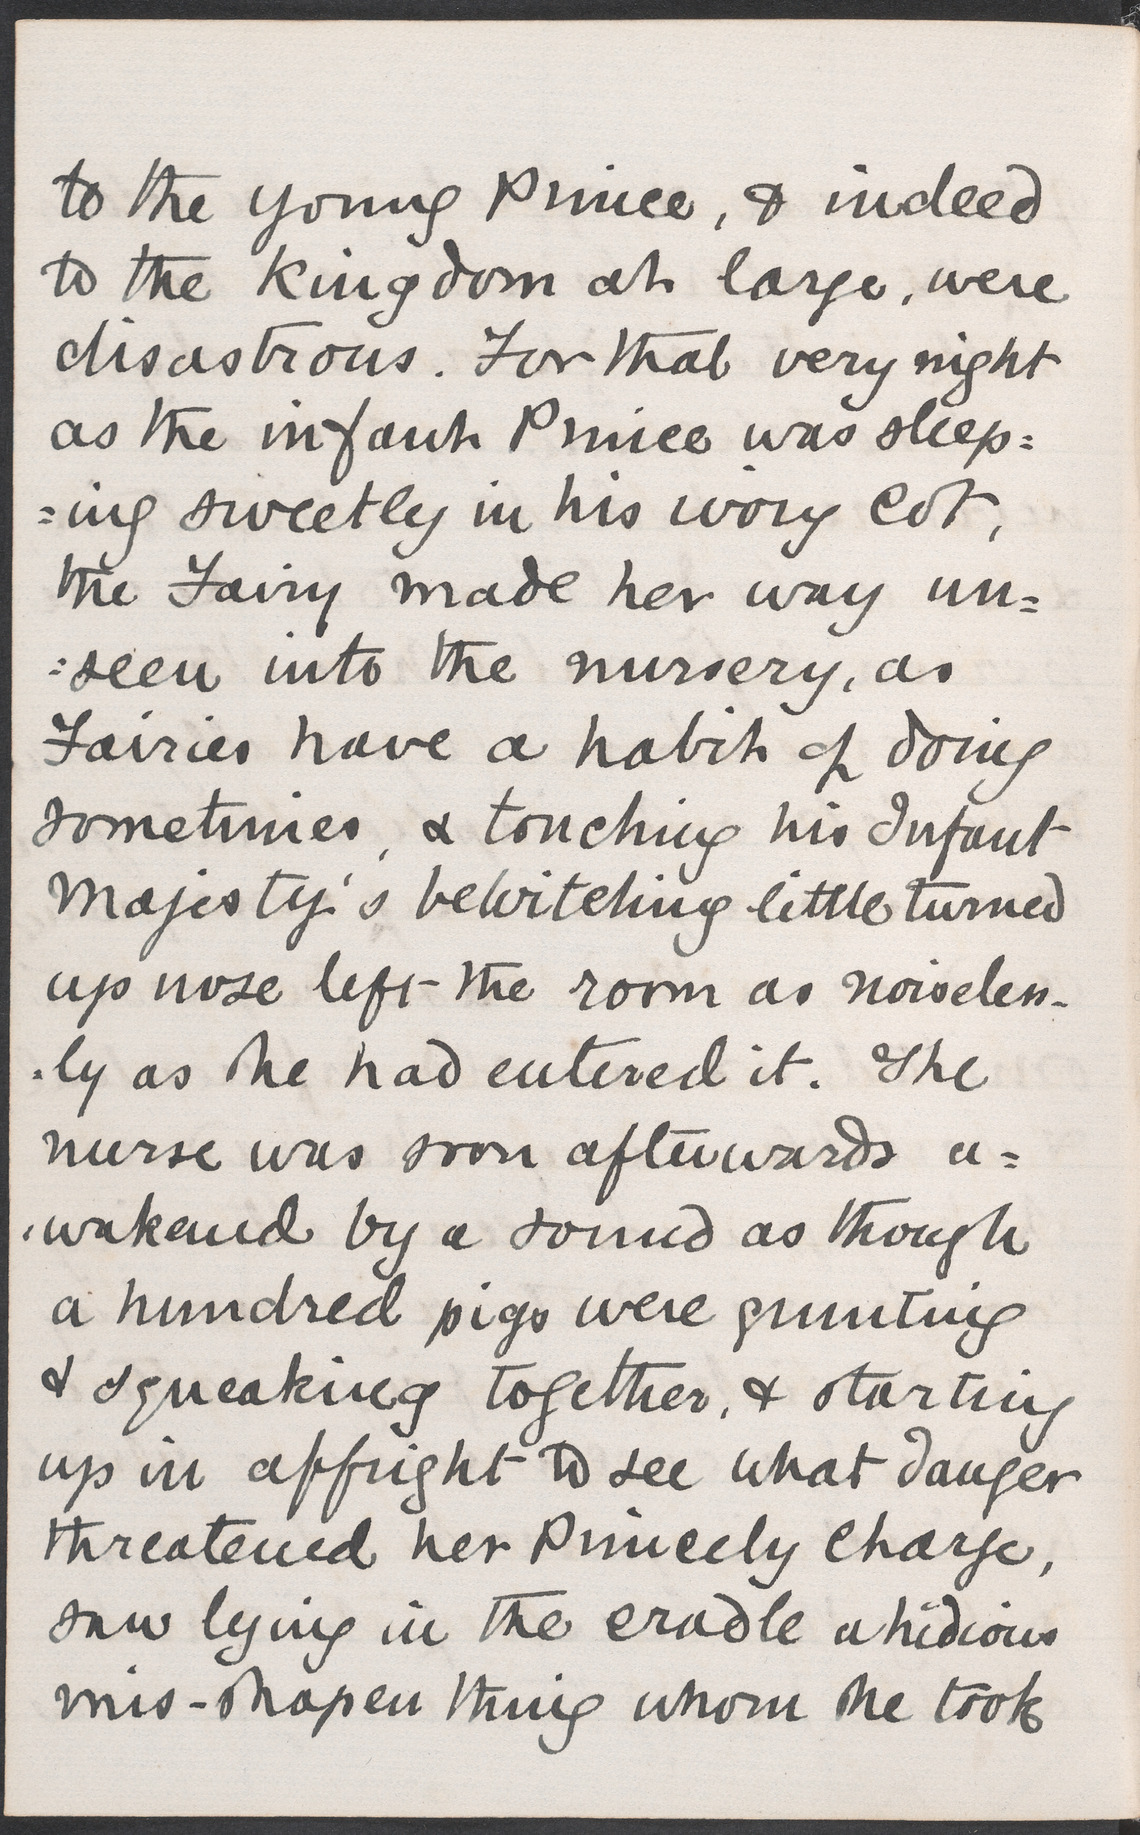 to the young Prince, & indeed
to the Kingdom at large, were
disastrous. For that very night
as the infant Prince was sleep=
=ing sweetly in his ivory cot,
the Fairy made her way un=
=seen into the nursery, as
Fairies have a habit of doing
sometimes, & touching his Infant
Majesty's bewitching little turned
up nose left the room as noiseless-
-ly as she had entered it. The
nurse was soon afterwards a=
-wakened by a sound as though
a hundred pigs were grunting
& squeaking together, & starting
up in affright to see what danger
threatened her Princely charge,
saw lying in the cradle a hidious
mis-shapen thing whom she took